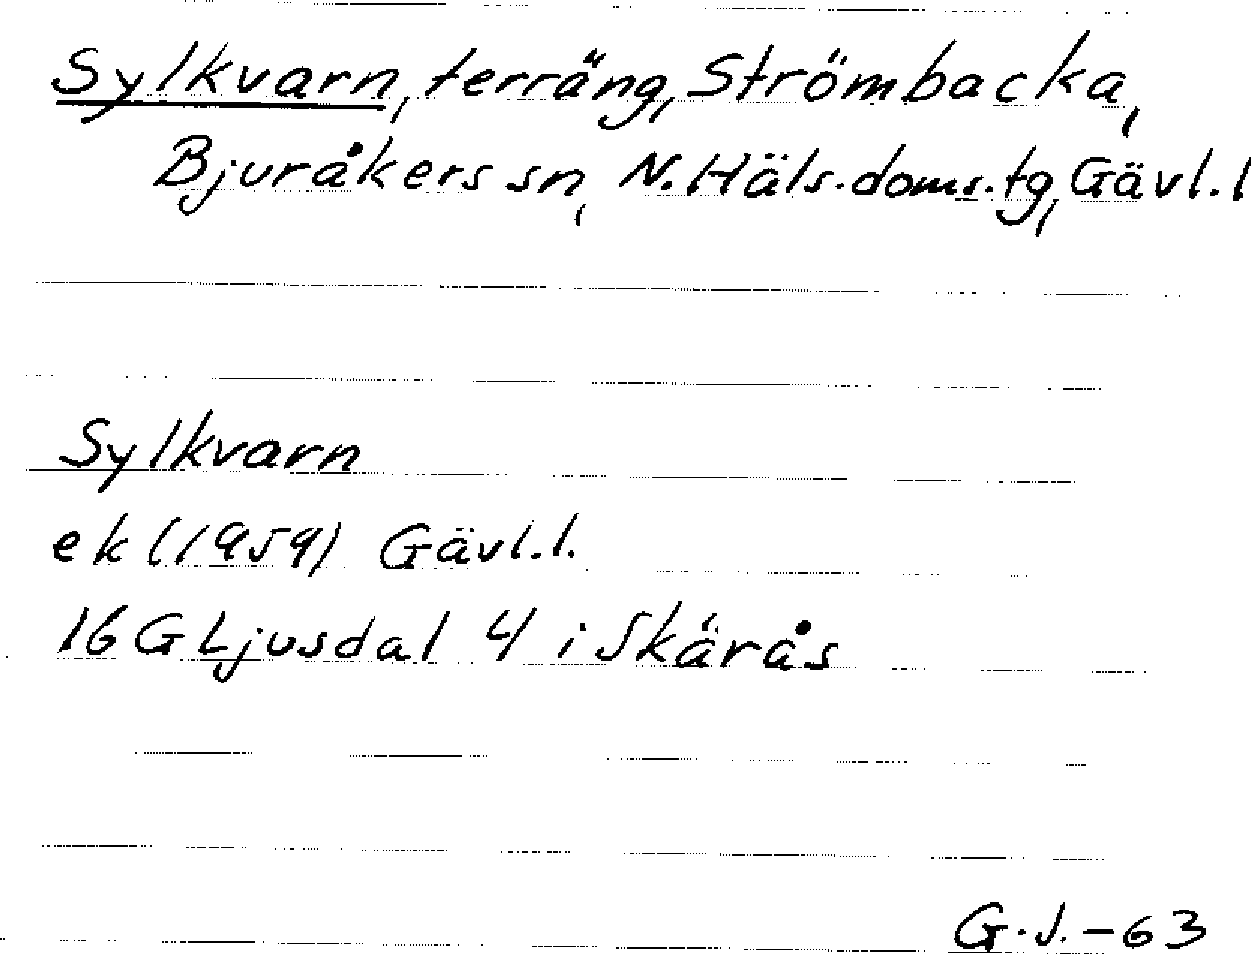 Sylkvarn, terräng, Strömbacka,
Bjuråkers sn, N. Häls. doms. tg, Gävl. l
Sylkvarn
ek (1959) Gävl. l.
16 G Ljusdal 4 i Skärås
G. J. - 63